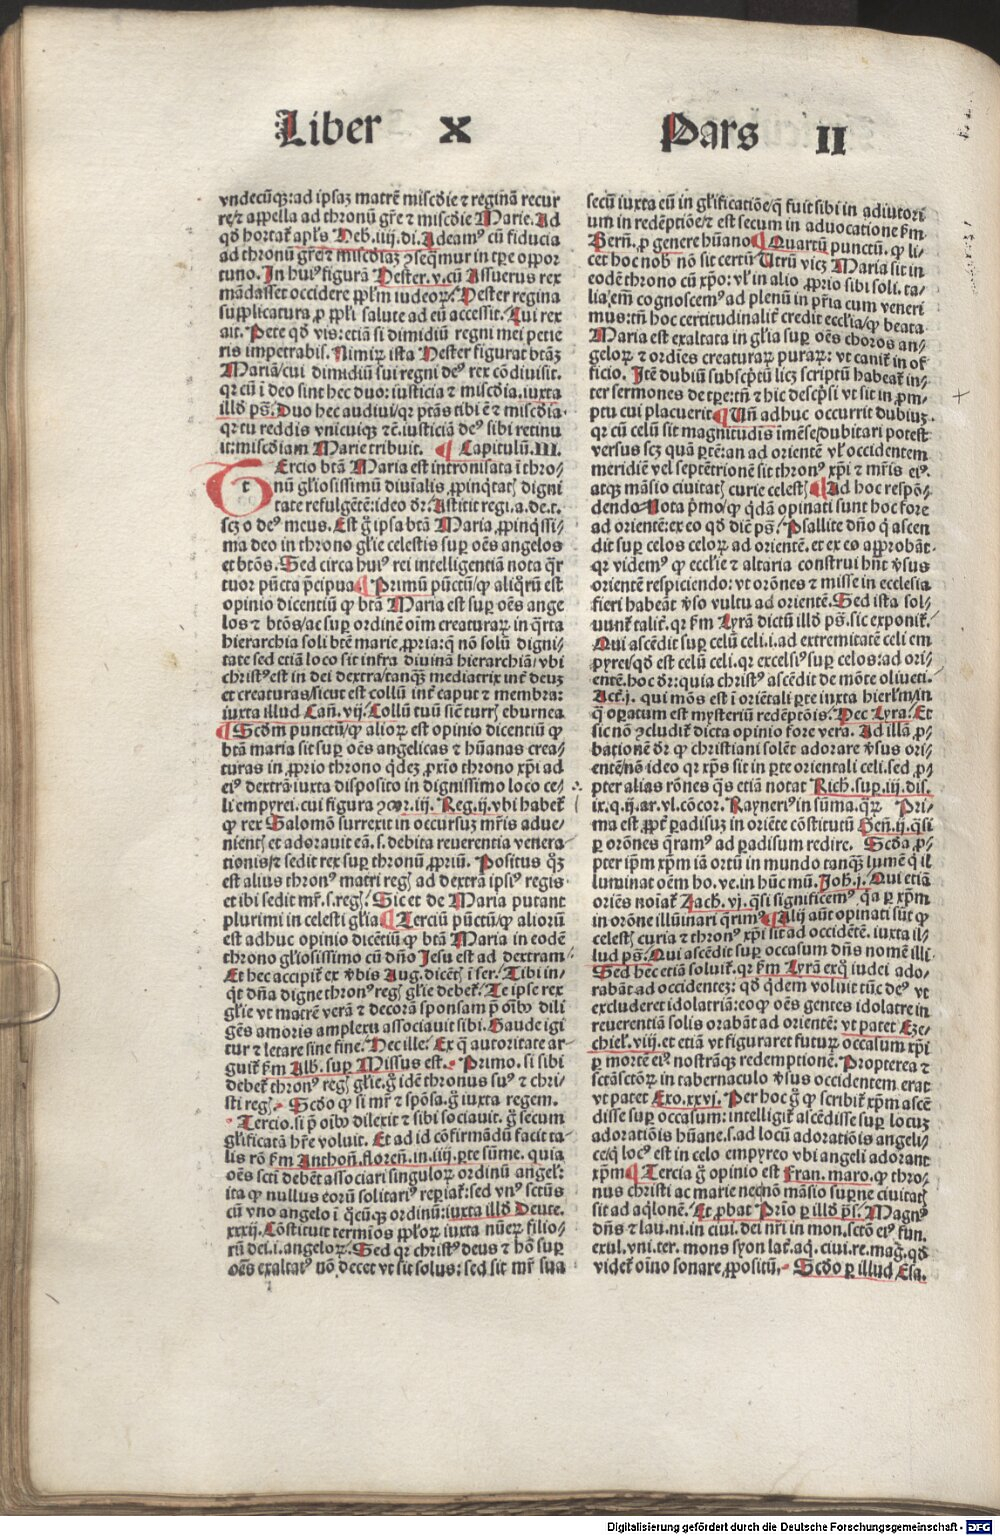 Liber X Pars II
vndecūqꝫ: ad ipsaꝫ matrē miscdie ⁊ reginā recur
re/⁊ appella ad thronū gr̄e ⁊ miscdie Marie. Ad
qd̄ hortat̄ apl̄s Heb. iiij. di. Adeamꝰ cū fiducia
ad thronū gr̄e ⁊ miscdiaꝫ ꝯseqmur in tp̄e oppor
tuno. In huiꝰ figurā Hester. v. cū Assuerus rex
mādasset occidere ppl̄m iudeoꝝ. Hester regina
supplicatura ꝓ ppl̄i salute ad eū accessit. Cui rex
ait. Pete qd̄ vis: etiā si dimidiū regni mei petie
ris impetrabis. Nimiꝝ ista Hester figurat btāꝫ
Mariā/cui dimidiū sui regni deꝰ rex cōdiuisit.
qr cū ī deo sint hec duo: iusticia ⁊ miscdia. iuxta
illd̄ ps̄. Duo hec audiui/qr ptās tibi ē ⁊ miscdia
qr tu reddis vnicuiqꝫ ⁊c̄. iusticiā deꝰ sibi retinu
it: miscdiam Marie tribuit. ¶ Capitulū. III.
Tercio btā Maria est intronisata ī thro/
nū gl̄iosissimū diuīalis ꝓpinq̄tatꝭ digni
tate refulgētē: ideo dr̄. Astitit regi. a. de. t.
scꝫ o deꝰ meus. Est g̊ ipsa btā Maria ꝓpinq̄ssi/
ma deo in throno gl̄ie celestis suꝑ oēs angelos
et btōs. Sed circa huiꝰ rei intelligentiā nota q̄r
tuor pūcta p̄cipua ¶ Primū pūctū/ꝙ aliq̄rū est
opinio dicentiū ꝙ btā Maria est suꝑ oēs ange
los ⁊ btōs/ac suꝑ ordinē oīm creaturaꝝ in q̄rta
hierarchia soli btē marie ꝓpria: q̄ nō solū digni/
tate sed etiā loco sit infra diuinā hierarchiā/vbi
christꝰ est in dei dextra/tanqꝫ mediatrix int̄ deuꝫ
et creaturas/sicut est collū int̄ caput ⁊ membra:
iuxta illud Cāt. vij. Collū tuū sic̄ turrꝭ eburnea
¶ Scd̄m punctū/ꝙ alioꝝ est opinio dicentiū ꝙ
btā maria sit suꝑ oēs angelicas ⁊ hūanas crea/
turas in ꝓprio throno qdeꝫ ꝓxīo throno xp̄i ad
eiꝰ dextrā iuxta disposito in dignissimo loco ce/
li empyrei. cui figura ꝯcor. iij. Reg. ij. vbi habet̄
ꝙ rex Salomō surrexit in occursuꝫ mr̄is adue/
nientꝭ et adorauit eā. s. debita reuerentia venera
tionis/⁊ sedit rex suꝑ thronū ꝓpriū. Positus qꝫ
est alius thronꝰ matri regꝭ ad dextrā ipsiꝰ regis
et ibi sedit mr̄. s. regꝭ. Sic et de Maria putant
plurimi in celesti gl̄ia ¶ Terciū pūctū/ꝙ aliorū
est adhuc opinio dicētiū ꝙ btā Maria in eodē
throno gl̄iosissimo cū dn̄o Jesu est ad dextram
Et hec accipit̄ ex v̄bis Aug. dicētꝭ ī ser. Tibi in/
q̄t dn̄a digne thronꝰ regꝭ gl̄ie debet̄. Te ipse rex
gl̄ie vt matrē verā ⁊ decorā sponsam p̄ oībꝰ dili
gēs amoris amplexu associauit sibi. Gaude igi
tur ⁊ letare sine fine. Hec ille. Ex q̄ autoritate ar/
guit̄ ẜm Alb. suꝑ Missus est. Primo. si sibi
debet̄ thronꝰ regꝭ gl̄ie. g̊ idē thronus suꝰ ⁊ chri/
sti regꝭ. Scd̄o ꝙ si mr̄ ⁊ spōsa. g̊ iuxta regem.
Tercio. si p̄ oībꝰ dilexit ⁊ sibi sociauit. g̊ secum
gl̄ificatā hr̄e voluit. Et ad id cōfirmādū facit ta/
lis rō ẜm Anthoñ. floreñ. in. iiij. ꝑte sūme. quia
oēs scti debēt associari singuloꝝ ordinū angel̄:
ita ꝙ nullus eorū solitariꝰ reꝑiat̄: sed vnꝰ sctūs
cū vno angelo ī q̄cūqꝫ ordinū: iuxta illd̄ Deute.
xxxij. Cōstituit termīos ppl̄oꝝ iuxta nūeꝝ filio/
rū dei. i. angeloꝝ. Sed qr christꝰ deus ⁊ hō suꝑ
oēs exaltatꝰ nō decet vt sit solus: sed sit mr̄ sua
secū iuxta eū in gl̄ificatiōe/q̄ fuit sibi in adiutori
um in redēptiōe/⁊ est secum in aduocatione ẜm
Berñ. ꝓ genere hūano ¶ Quartū punctū. ꝙ li/
cet hoc nob̄ nō sit certū Utrū vicꝫ Maria sit in
eodē throno cū xp̄o: vl̄ in alio ꝓprio sibi soli. ta/
lia em̄ cognoscemꝰ ad plenū in pr̄ia cum veneri
mus: tn̄ hoc certitudinalit̄ credit eccl̄ia/ꝙ beata
Maria est exaltata in gl̄ia suꝑ oēs choros an/
geloꝝ ⁊ ordīes creaturaꝝ puraꝝ: vt canit̄ in of
ficio. Itē dubiū subscp̄tū licꝫ scriptū habeat̄ in/
ter sermones de tp̄e: tn̄ ⁊ hic descp̄si vt sit in ꝓm/
ptu cui placuerit ¶ Un̄ adhuc occurrit dubiuꝫ
qr cū celū sit magnitudis īmēse/dubitari potest
versus scꝫ quā ꝑtē: an ad orientē vl̄ occidentem
meridiē vel septētrionē sit thronꝰ xp̄i ⁊ mr̄is eiꝰ.
atqꝫ māsio ciuitatꝭ curie celestꝭ ¶ Ad hoc respō/
dendo Nota p̄mo/ꝙ qdā opinati sunt hoc fore
ad orientē: ex eo qd̄ diē ps̄. Psallite dn̄o q̄ ascen
dit suꝑ celos celoꝝ ad orientē. et ex eo approbāt
qr videmꝰ ꝙ ecclīe ⁊ altaria construi hn̄t v̄sus
orientē respiciendo: vt orōnes ⁊ misse in ecclesia
fieri habeāt v̄so vultu ad orientē. Sed ista sol/
uunt̄ talit̄. qr ẜm Lyrā dictū illd̄ ps̄. sic exponit̄.
Qui ascēdit suꝑ celū celi. i. ad extremitatē celi em
pyrei/qd̄ est celū celi. qr excelsiꝰ suꝑ celos: ad ori/
entē. hoc dr̄: quia christꝰ ascēdit de mōte oliueti.
Act̄. j. qui mōs est ī oriētali ꝑte iuxta hierl̄m/in
q̄ oꝑatum est mysteriū redēptōis. Hec Lyra. Et
sic nō ꝯcludit̄ dicta opinio fore vera. Ad illā ꝓ/
bationē dr̄ ꝙ christiani solēt adorare v̄sus ori/
entē/nō ideo qr xp̄s sit in ꝑte orientali celi. sed ꝓ/
pter alias rōnes q̄s etiā notat Rich. suꝑ. iij. dis.
ix. q. ij. ar. vl. cōcor. Raynerꝰ in sūma. q̄ꝝ Pri/
ma est ꝓpt̄ ꝑadisuꝫ in oriēte cōstitutū Geñ. ij. q̄si
ꝑ orōnes q̄ramꝰ ad ꝑadisum redire. Scd̄a ꝓ/
pter ip̄m xp̄m iā ortū in mundo tanqꝫ lumē q̄ il
luminat oēm ho. ve. in hūc mū. Joh̄. j. Qui etiā
oriēs noiat̄ Zach. vj. q̄si significemꝰ q̄a ꝑ xp̄m
in orōne illūinari q̄rimꝰ ¶ Alij aūt opinati sūt ꝙ
celestꝭ curia ⁊ thronꝰ xp̄i sit ad occidētē. iuxta il/
lud ps̄. Qui ascēdit suꝑ occasum dn̄s nomē illi
Sed hec etiā soluit̄. qr ẜm Lyrā exq̄ iudei ado/
rabāt ad occidenteꝫ: qd̄ qdem voluit tūc deꝰ vt
excluderet idolatriā: eoꝙ oēs gentes idolatre in
reuerentiā solis orabāt ad orientē: vt patet Eze/
chiel̄. viij. et etiā vt figuraret futuꝝ occasum xp̄i
ꝑ mortē eiꝰ nostrāqꝫ redemptionē. Propterea ⁊
sctāsctōꝝ in tabernaculo v̄sus occidentem erat
vt patet Exo. xxvj. Per hoc g̊ ꝙ scribit̄ xp̄m ascē
disse suꝑ occasum: intelligit̄ ascēdisse suꝑ locuꝫ
adoratiōis hūane. s. ad locū adoratiōis angeli/
ce/q̄ locꝰ est in celo empyreo vbi angeli adorant
xp̄m ¶ Tercia g̊ opinio est Fran. maro. ꝙ thro/
nus christi ac marie necnō māsio suꝑne ciuitatꝭ
sit ad aqlonē. Et ꝓbat Prīo ꝑ illd̄ ps̄. Magnꝰ
dn̄s ⁊ lau. ni. in ciui. dei nr̄i in mon. sctō eiꝰ fun.
exul. vni. ter. mons syon lat̄. aq̄. ciui. re. maḡ. qd̄
videt̄ oīno sonare ꝓpositū. Scd̄o ꝑ illud Esa.
Digitalisierung gefördert durch die Deutsche Forschungsgemeinschaft - DFG